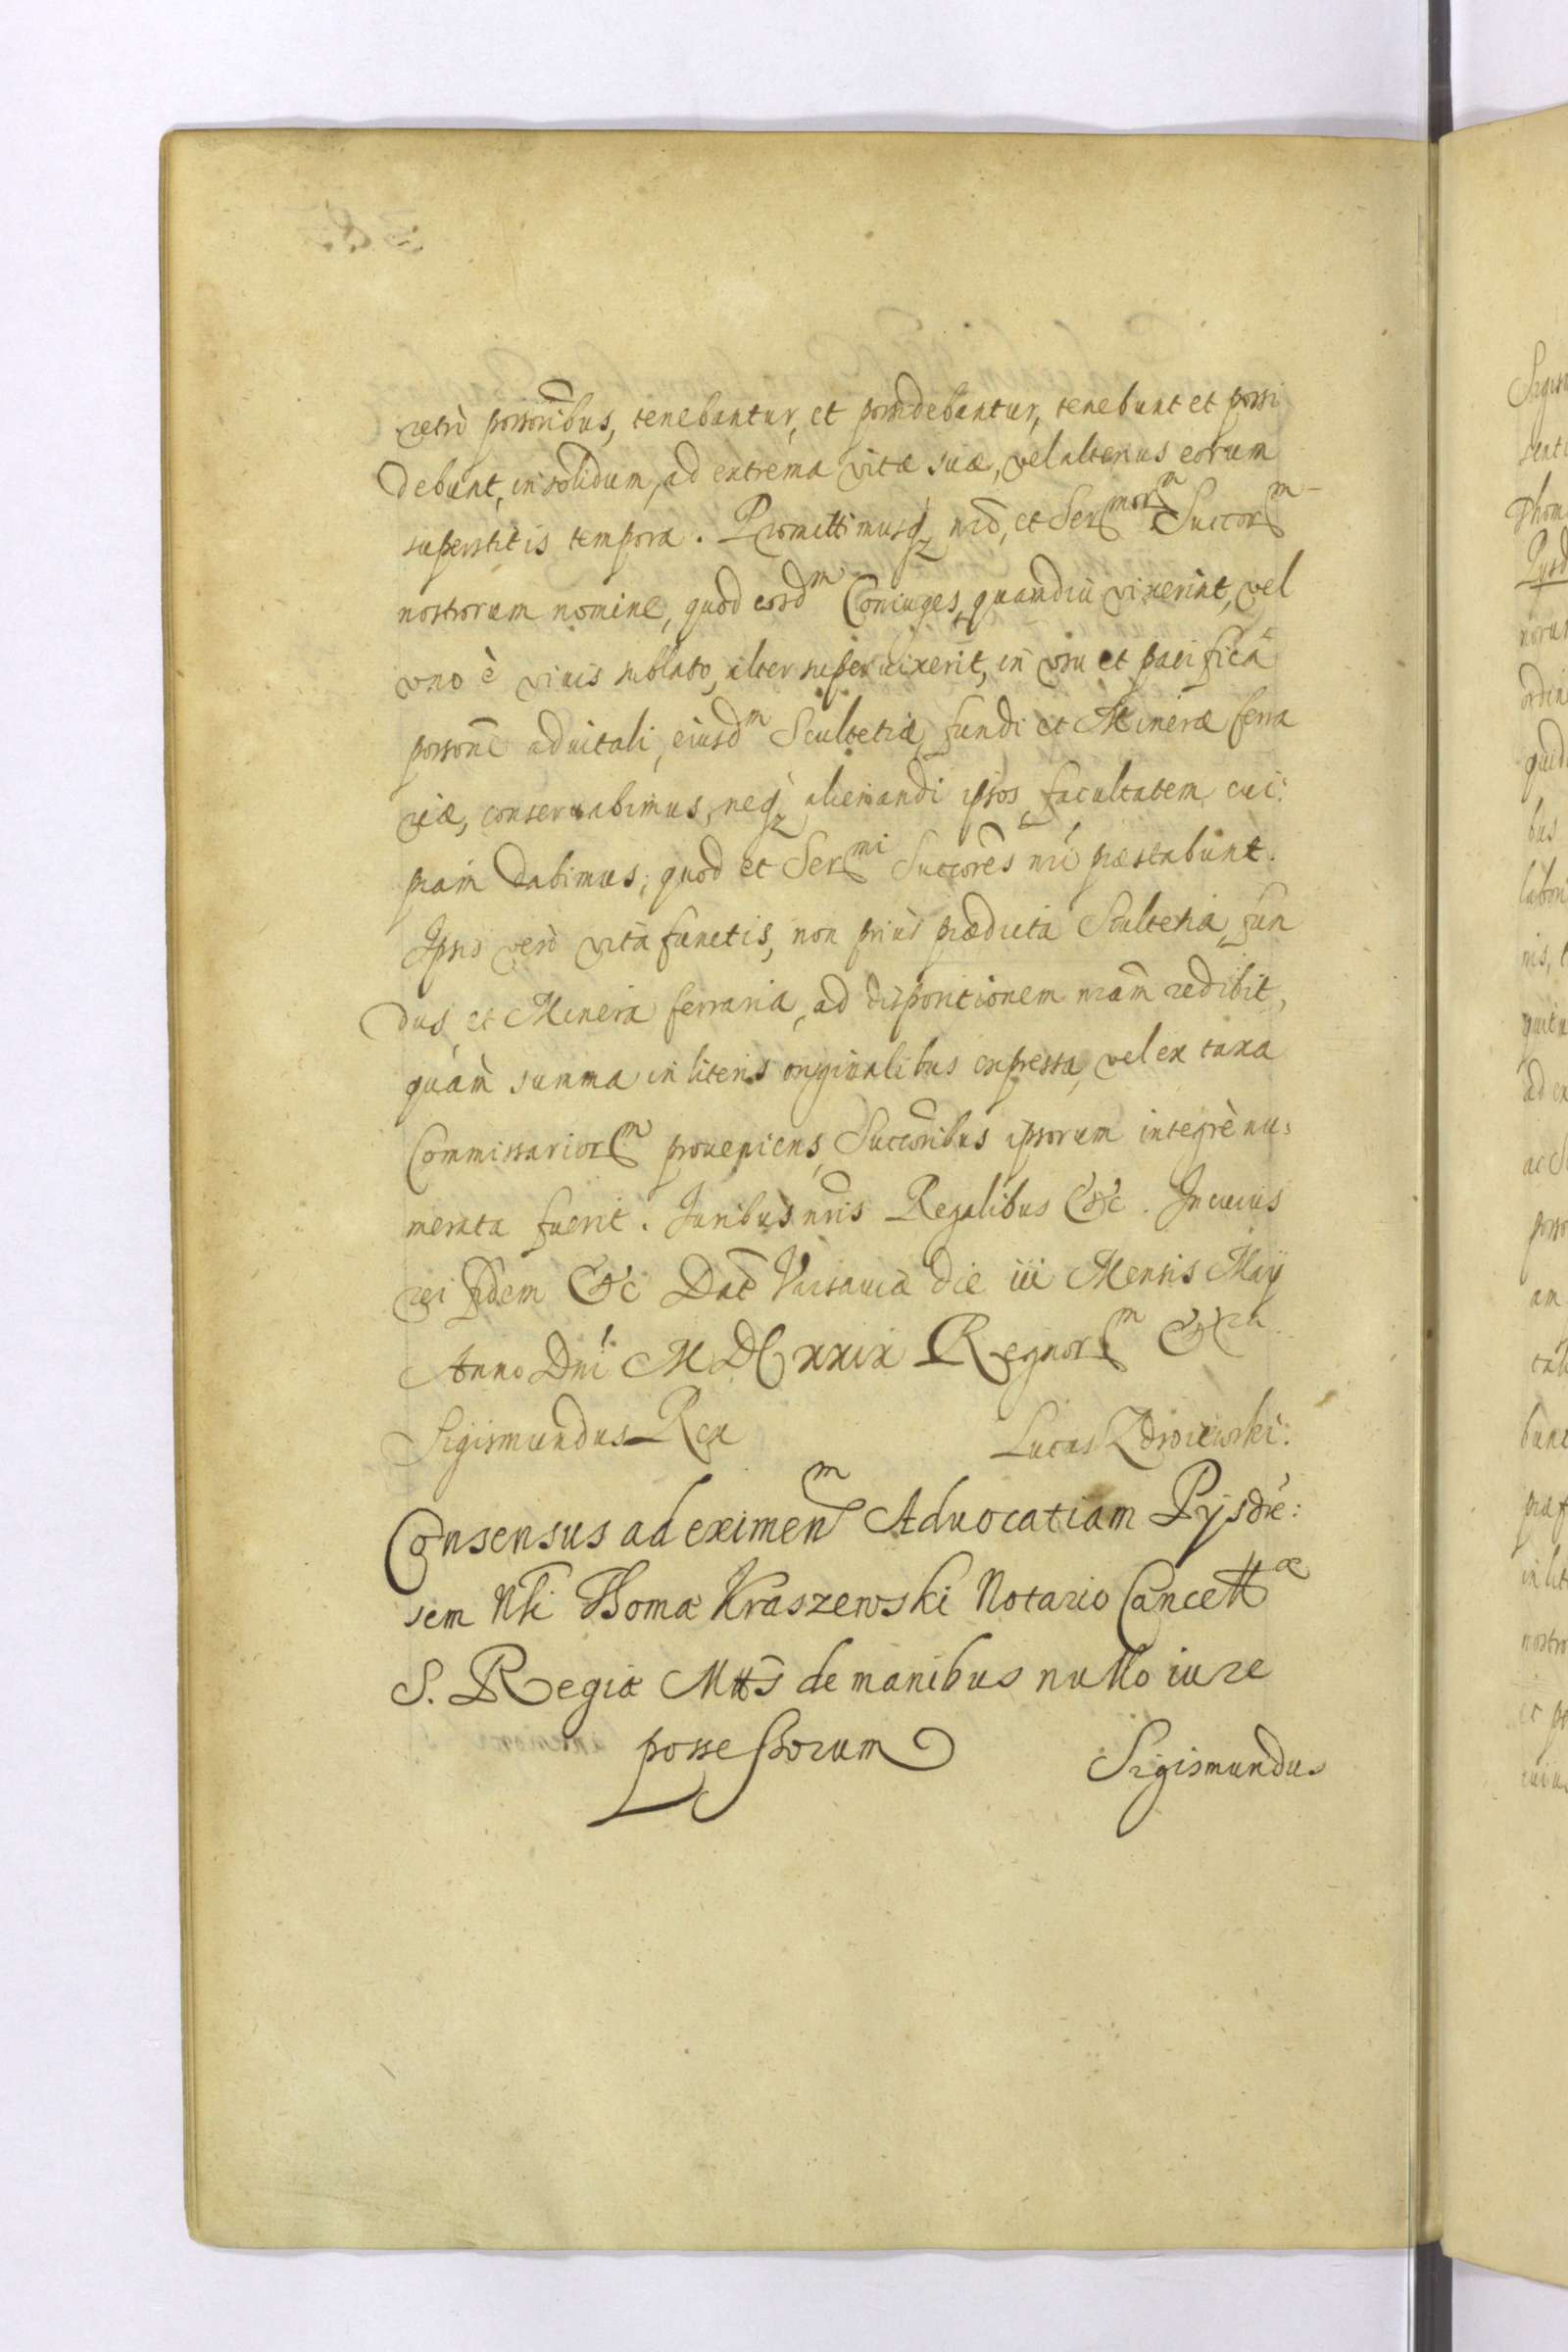 retrò possoribus, tenebantur, et possidebantur, tenebunt et possi
debunt, in solidum, ad extrema vitæ suæ, vel alterius eorum
superstitis tempora. Promittimusq nro, et Sermor Succor
nostrorum nomine, quod eosdm Coniuges, quamdiu vixerint, vel
vno è viuis sublato, alter superuixerit, in vsu et pacificâ
possone aduitali, eiusdm Scultetiæ, fundi et Mineræ ferra
riæ, conseruabimus, neq alienandi ipsos facultatem cui:
piam dabimus; quod et Sermi Succores nri præstabunt.
Ipsis verò vitâ functis, non priùs prædicta Scultetia, fun
dus, et Minera ferraria, ad dispositionem nram redibit,
quàm summa in literis originalibus expressa, vel ex taxa
Commissariorm proueniens, Succoribus ipsorum integrè nu:
merata fuerit. Iuribus nris Regalibus &c. In cuius
rei fidem &c Dat Varsauiæ die iii Mensis Maÿ
Anno Dni MDCxxix Regnorm &
Sigismundus Rex Lucas Zdroiewski:
Consensus ad eximenm Aduocatiam Pÿsdre:
sem Nli Thomæ Kraszewski Notario Cancellæ
S. Regiæ Mttis de manibus nullo iure
possessorum Sigismundus